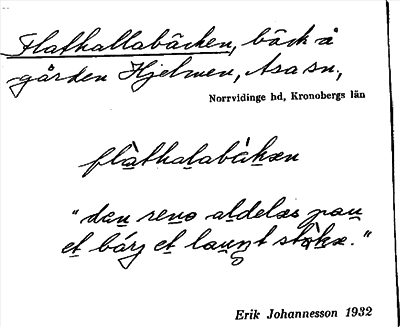 Flathallabäcken, bäck å
gården Hjelmen, Asa sn,
Norrvidinge hd, Kronobergs län
flàthalabàkæn
"dæn renə aldeləs pau
et bárj et launt stỳkə."
Erik Johannesson 1932